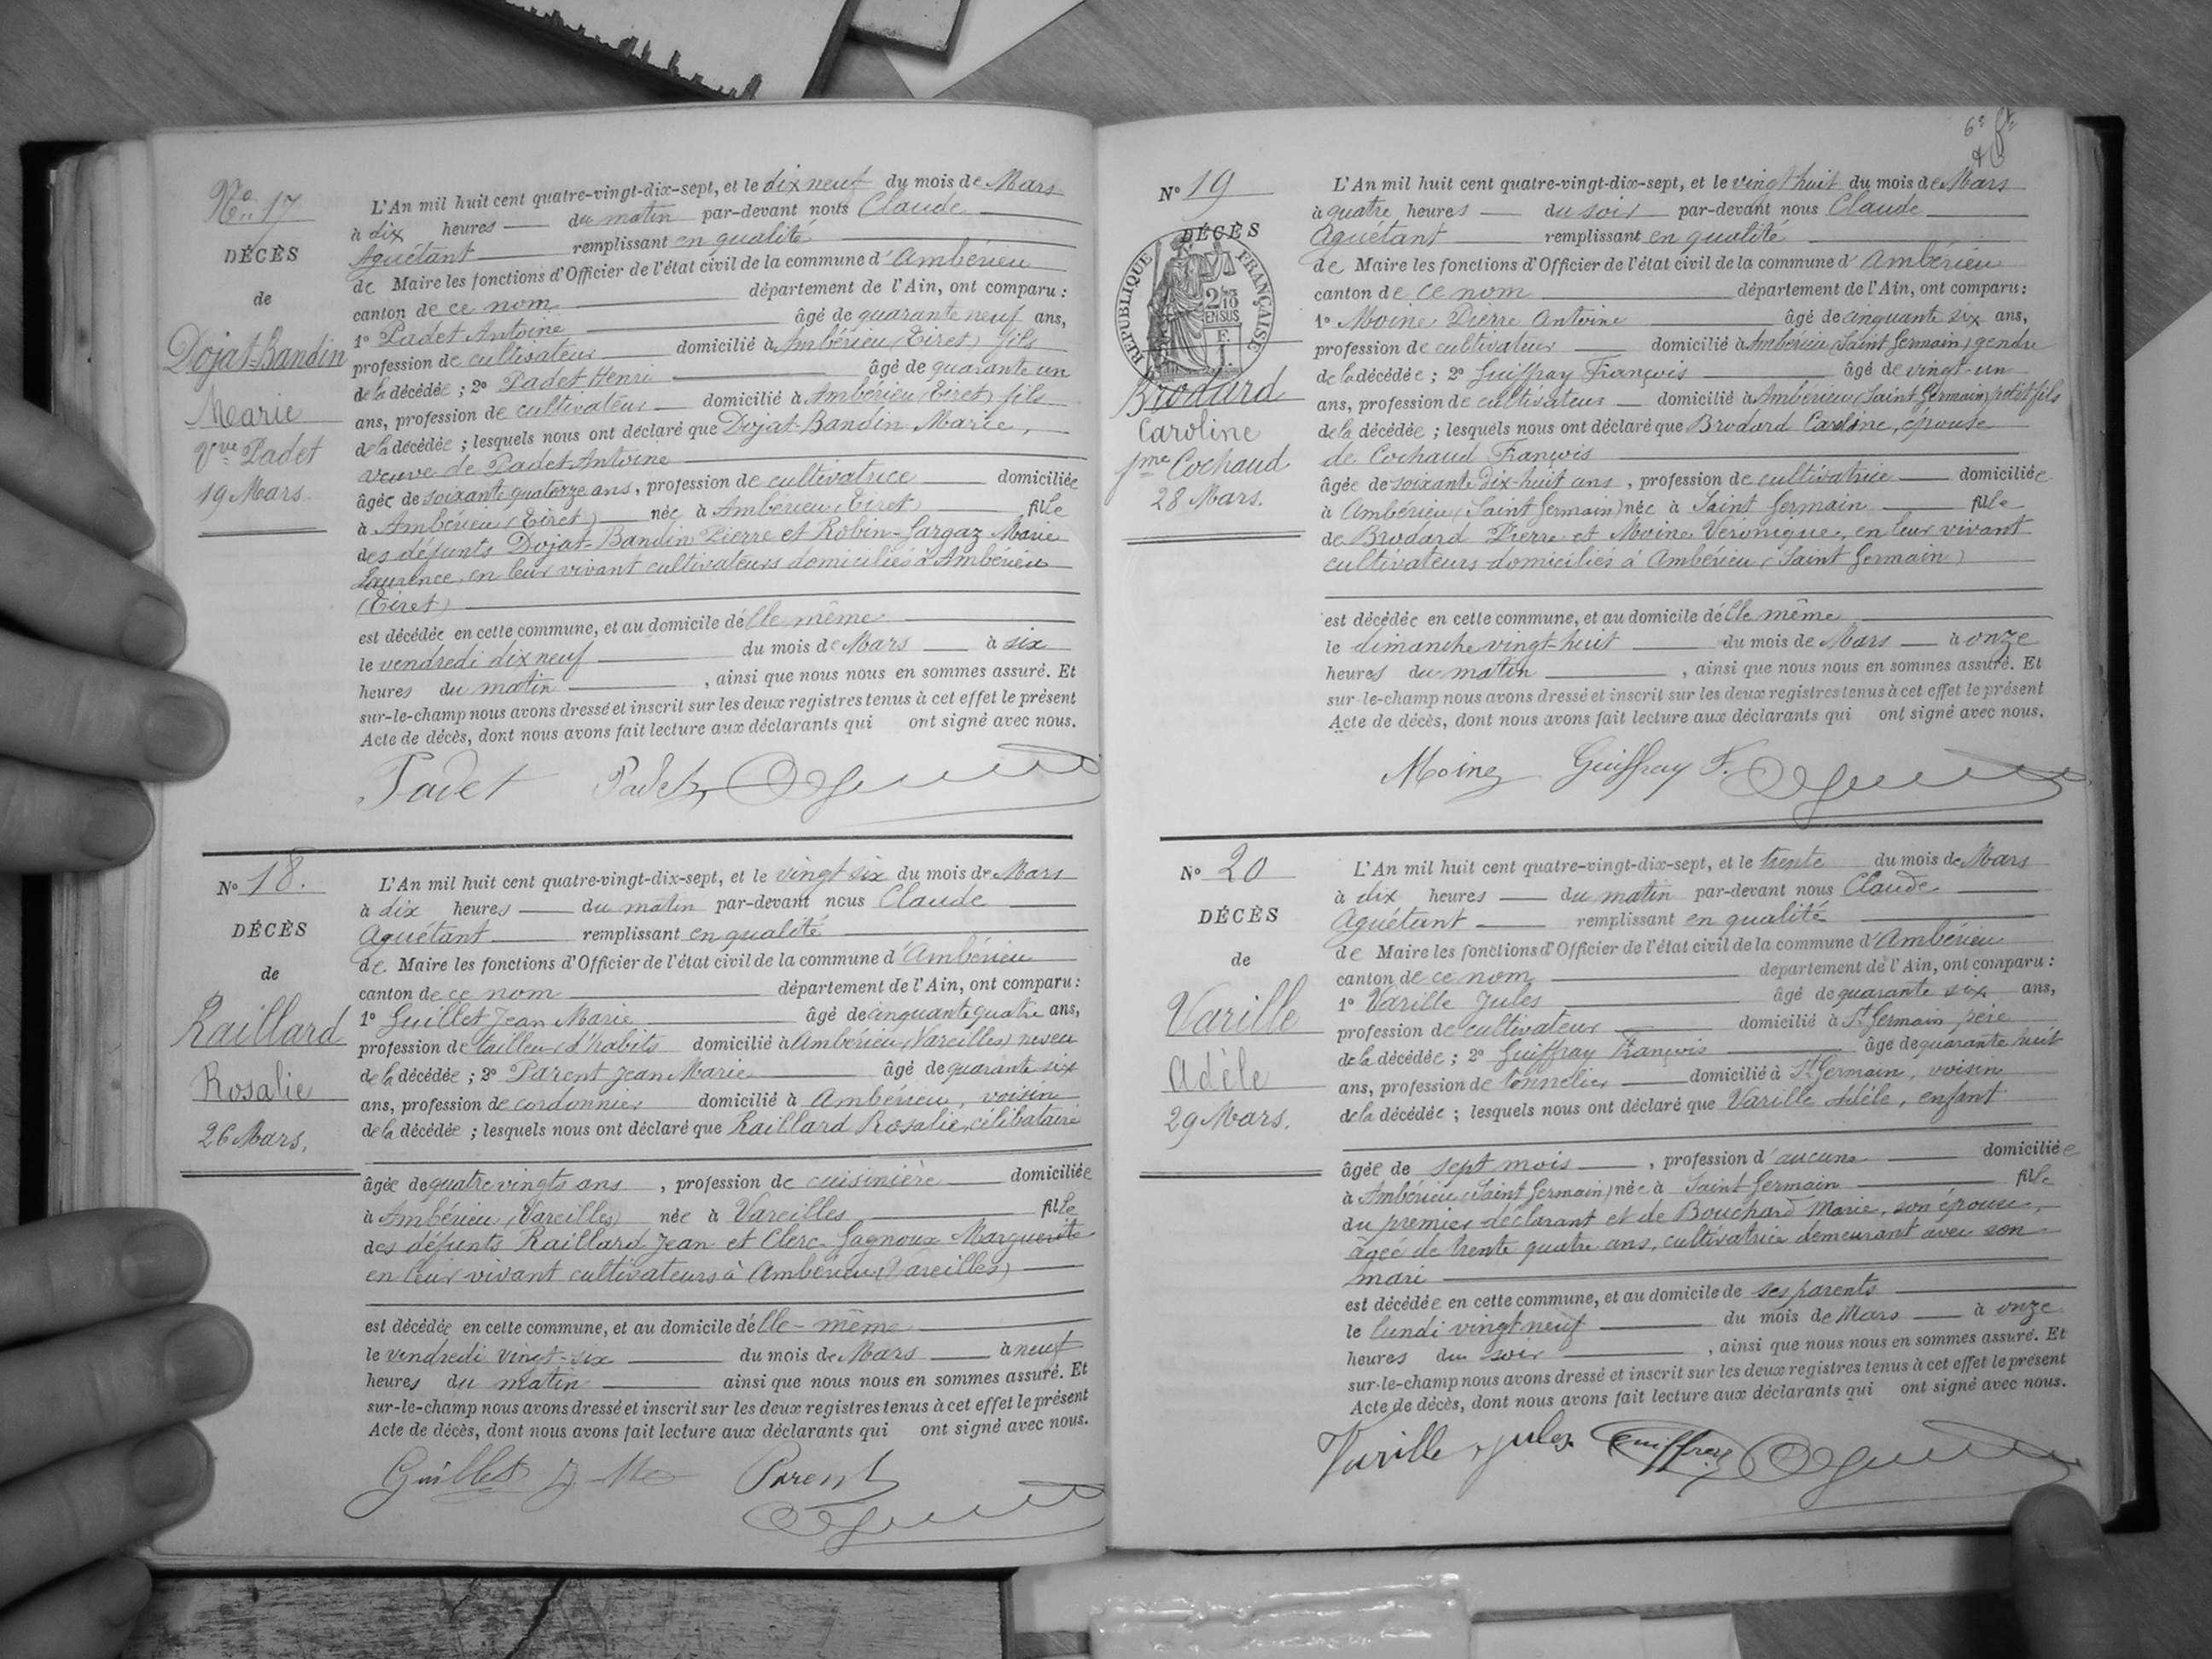 No 17
DÉCÈS
de
Dojat-Bandin
Marie
Vve Padet
19 Mars.
L'An mil huit cent quatre-vingt-dix-sept, et le dix neuf du mois de Mars
à dix heures du matin par-devant nous Claude
Aguétant remplissant en qualité
de Maire les fonctions d'Officier de l'état civil de la commune d'Ambérieu
canton de ce nom département de l'Ain, ont comparu :
1º Padet Antoine âgé de quarante neuf ans,
profession de cultivateur domicilié à Ambérieu (Tiret) fils
de la décédée ; 2º Padet Henri âgé de quarante un
ans, profession de cultivateur domicilié à Ambérieu (Tiret) fils
de la décédée ; lesquels nous ont déclaré que Dojat-Bandin Marie,
veuve de Padet Antoine
âgée de soixante quatorze ans, profession de cultivatrice domiciliée
à Ambérieu (Tiret) née à Ambérieu (Tiret) fille
des défunts Dojat-Bandin Pierre et Robin-Gargaz Marie
Laurence, en leur vivant cultivateurs domiciliés à Ambérieu
(Tiret)
est décédée en cette commune, et au domicile d'elle même
le vendredi dix neuf du mois de Mars à six
heures du matin , ainsi que nous nous en sommes assuré. Et
sur-le-champ nous avons dressé et inscrit sur les deux registres tenus à cet effet le présent
Acte de décès, dont nous avons fait lecture aux déclarants qui ont signé avec nous.
Padet Padet
No 18.
DÉCÈS
de
Raillard
Rosalie
26 Mars.
L'An mil huit cent quatre-vingt-dix-sept, et le vingt six du mois de Mars
à dix heures du matin par-devant nous Claude
Aguétant remplissant en qualité
de Maire les fonctions d'Officier de l'état civil de la commune d'Ambérieu
canton de ce nom département de l'Ain, ont comparu :
1º Guillet Jean Marie âgé de cinquante quatre ans,
profession de tailleur d'habits domicilié à Ambérieu (Vareilles) neveu
de la décédée ; 2º Parent Jean Marie âgé de quarante six
ans, profession de cordonnier domicilié à Ambérieu, voisin
de la décédée ; lesquels nous ont déclaré que Raillard Rosalie, célibataire
âgée de quatre vingts ans , profession de cuisinière domiciliée
à Ambérieu (Vareilles) née à Vareilles fille
des défunts Raillard Jean et Clerc-Gagnoux Marguerite
en leur vivant cultivateurs à Ambérieu (Vareilles)
est décédée en cette commune, et au domicile d'elle-même
le vendredi vingt-six du mois de Mars à neuf
heures du matin ainsi que nous nous en sommes assuré. Et
sur-le-champ nous avons dressé et inscrit sur les deux registres tenus à cet effet le présent
Acte de décès, dont nous avons fait lecture aux déclarants qui ont signé avec nous.
Guillet J-Me Parent
6e
No 19
DÉCÈS
RÉPUBLIQUE FRANÇAISE
Brodard
Caroline
fme Cochaud
28 Mars.
L'An mil huit cent quatre-vingt-dix-sept, et le vingt huit du mois de Mars
à quatre heures du soir par-devant nous Claude
Aguétant remplissant en qualité
de Maire les fonctions d'Officier de l'état civil de la commune d'Ambérieu
canton de ce nom département de l'Ain, ont comparu :
1º Moine Pierre Antoine âgé de cinquante six ans,
profession de cultivateur domicilié à Ambérieu (Saint Germain) gendre
de la décédée ; 2º Guiffray François âgé de vingt-un
ans, profession de cultivateur domicilié à Ambérieu (Saint Germain) petit fils
de la décédée ; lesquels nous ont déclaré que Brodard Caroline, épouse
de Cochaud François
âgée de soixante dix-huit ans , profession de cultivatrice domiciliée
à Ambérieu (Saint Germain) née à Saint Germain fille
de Brodard Pierre et Moine Véronique, en leur vivant
cultivateurs domiciliés à Ambérieu (Saint Germain)
est décédée en cette commune, et au domicile d'elle même
le dimanche vingt-huit du mois de Mars à onze
heures du matin , ainsi que nous nous en sommes assuré. Et
sur-le-champ nous avons dressé et inscrit sur les deux registres tenus à cet effet le présent
Acte de décès, dont nous avons fait lecture aux déclarants qui ont signé avec nous.
Moine Guiffray F.
No 20
DÉCÈS
de
Varille
Adèle
29 Mars.
L'An mil huit cent quatre-vingt-dix-sept, et le trente du mois de Mars
à dix heures du matin par-devant nous Claude
Aguétant remplissant en qualité
de Maire les fonctions d'Officier de l'état civil de la commune d'Ambérieu
canton de ce nom département de l'Ain, ont comparu :
1º Varille Jules âgé de quarante six ans,
profession de cultivateur domicilié à St Germain père
de la décédée ; 2º Guiffray François âgé de quarante huit
ans, profession de tonnelier domicilié à St Germain, voisin
de la décédée ; lesquels nous ont déclaré que Varille Adèle, enfant
âgée de sept mois , profession d'aucune domiciliée
à Ambérieu (Saint Germain) née à Saint Germain fille
du premier déclarant et de Bouchard Marie, son épouse,
âgée de trente quatre ans, cultivatrice demeurant avec son
mari
est décédée en cette commune, et au domicile de ses parents
le lundi vingt neuf du mois de Mars à onze
heures du soir , ainsi que nous nous en sommes assuré. Et
sur-le-champ nous avons dressé et inscrit sur les deux registres tenus à cet effet le présent
Acte de décès, dont nous avons fait lecture aux déclarants qui ont signé avec nous.
Varille Jules Guiffray